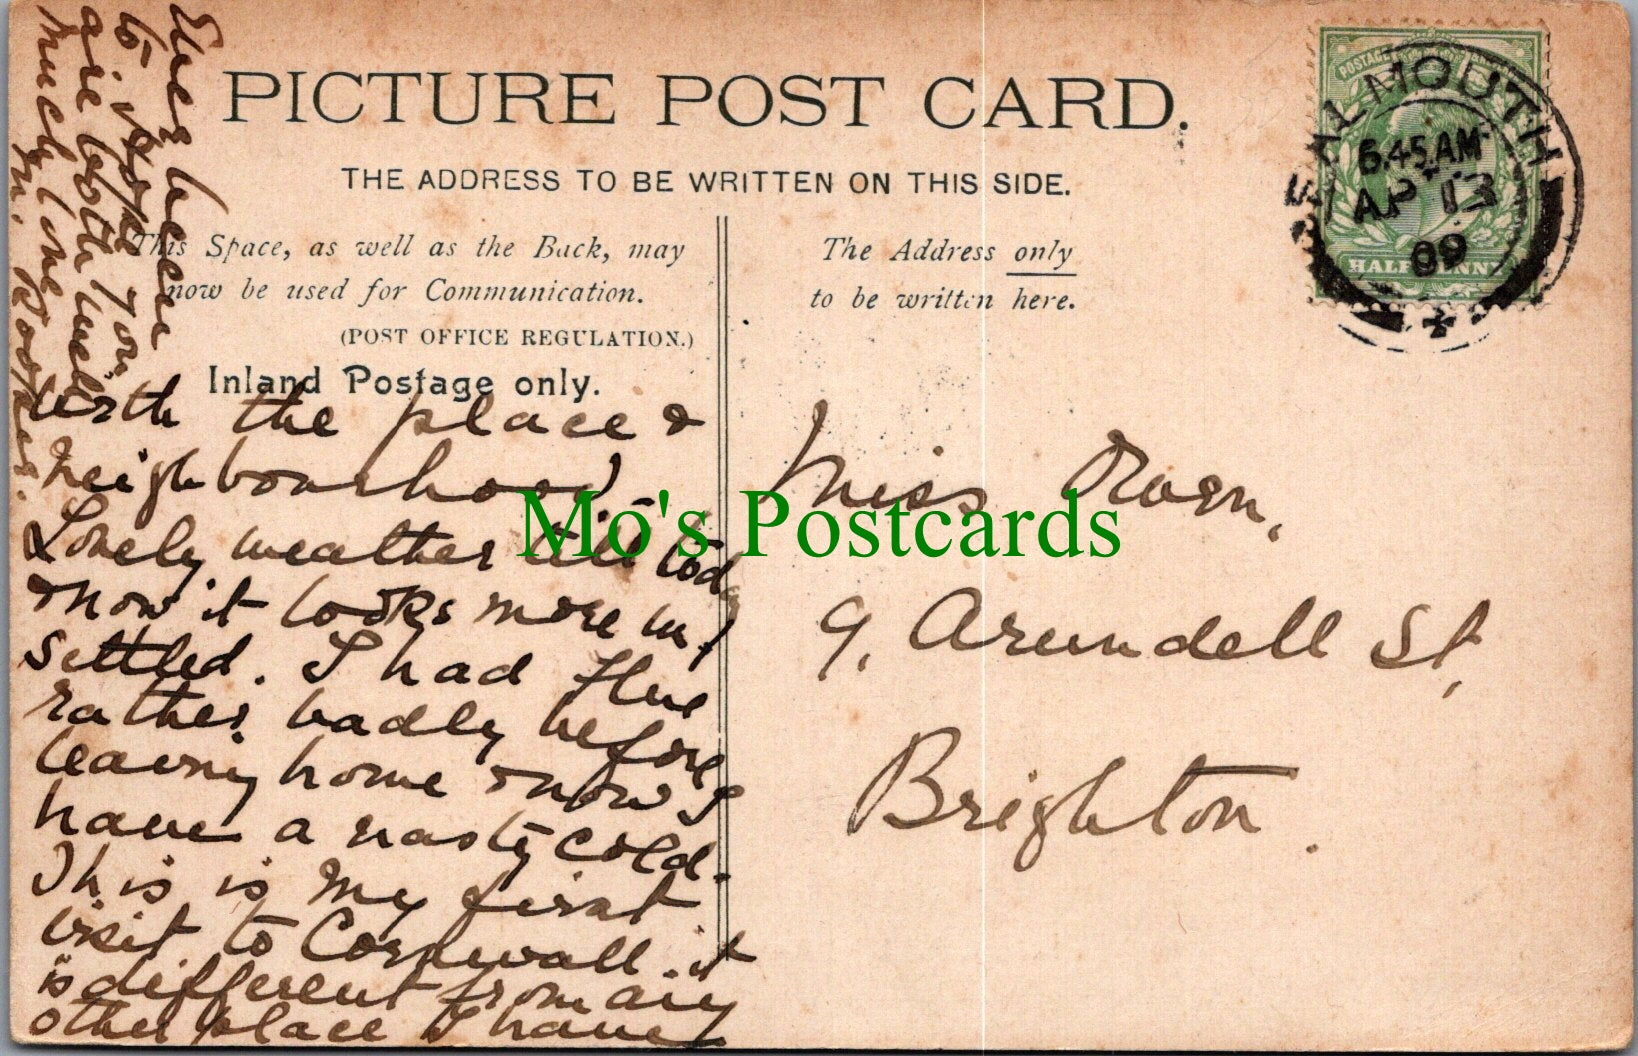 PICTURE POST CARD.
THE ADDRESS TO BE WRITTEN ON THIS SIDE.
This Space, as well as the Back, may
now be used for Communication.
(POST OFFICE REGULATION.)
Inland Postage only.
The Address only
to be written here.
POSTAGE
HALFPENNY
FALMOUTH
6.45.AM
AP 13
09
with the place &
neighbourhood
Lovely weather till today
& now it looks more un
settled. I had flue
rather badly before
leaving home & now I
have a nasty cold.
This is my first
visit to Cornwall. it
is different from any
other place I have
Ever been
to. Hope you
are both well
Much love
M. Rooper.
Miss
9, Arundell St,
Brighton.
Mo's Postcards